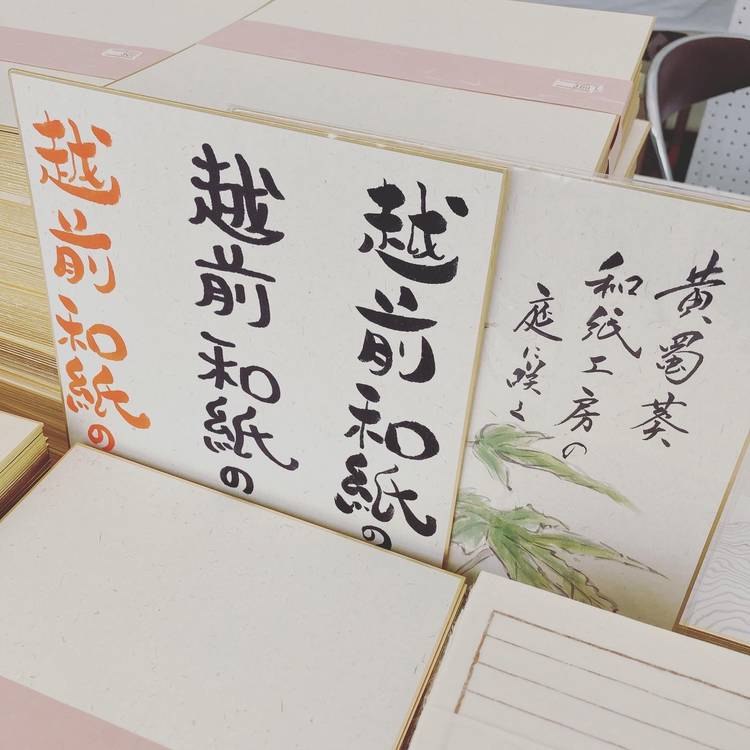 越前和紙の
越前和紙の
越前和紙の
黄蜀葵
和紙工房の
庭に咲く